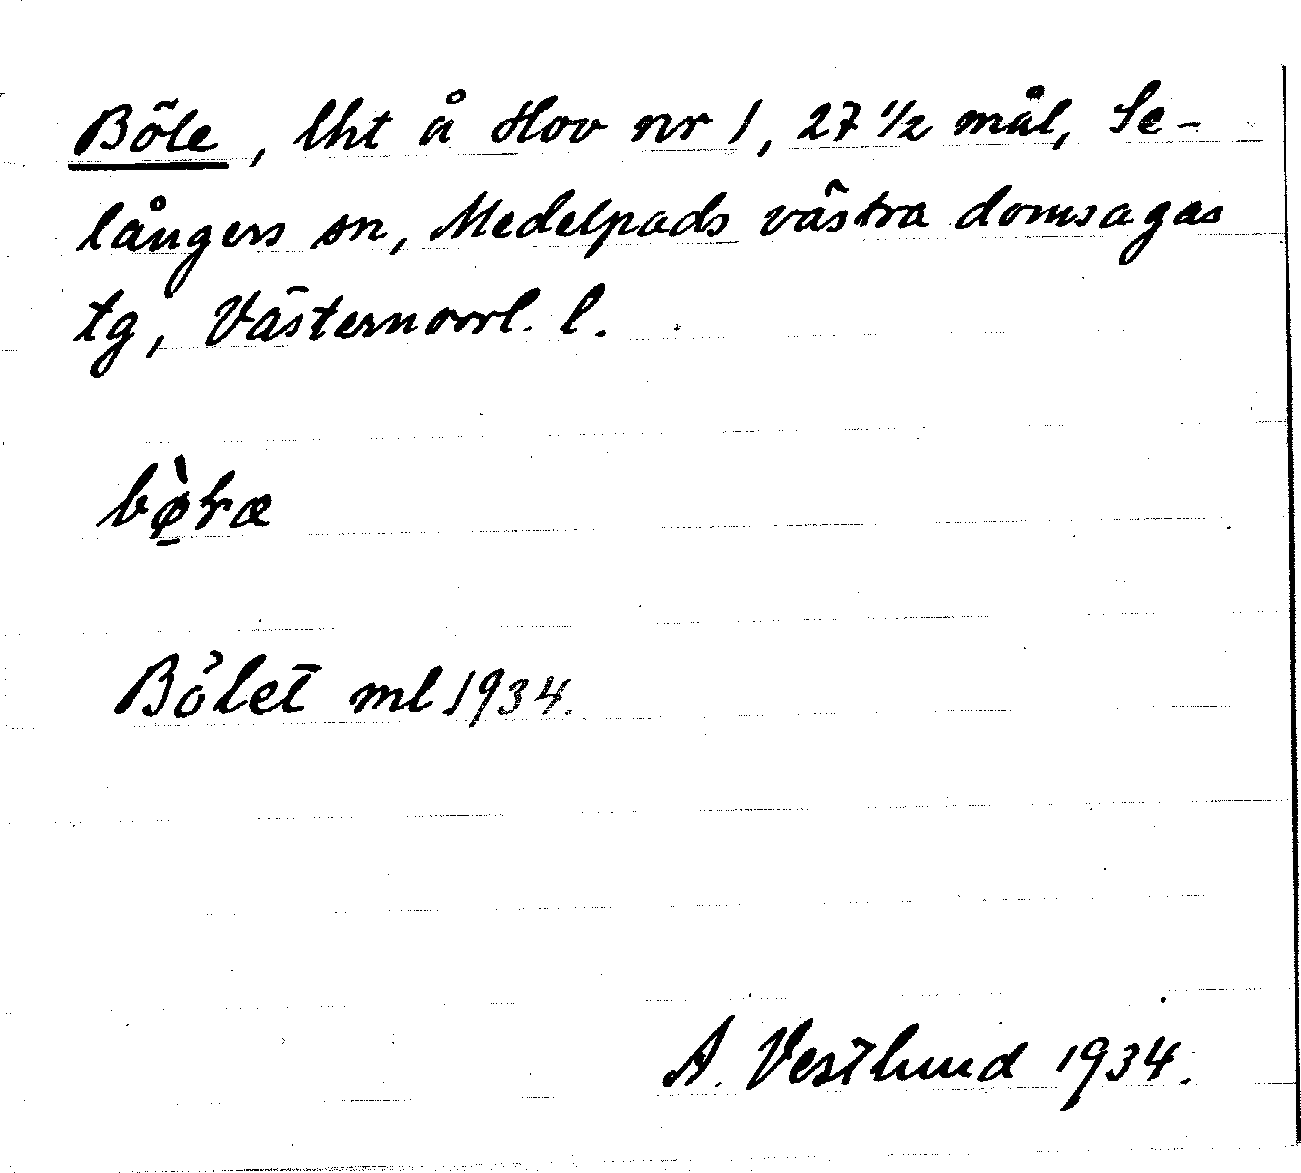 Böle, lht å Hov nr 1, 27 1/2 mål, Se-
långers sn, Medelpads västra domsagas
tg, Västernorrl. l.
bø̲̀ræ
Bölet ml 1934.
A. Vestlund 1934.